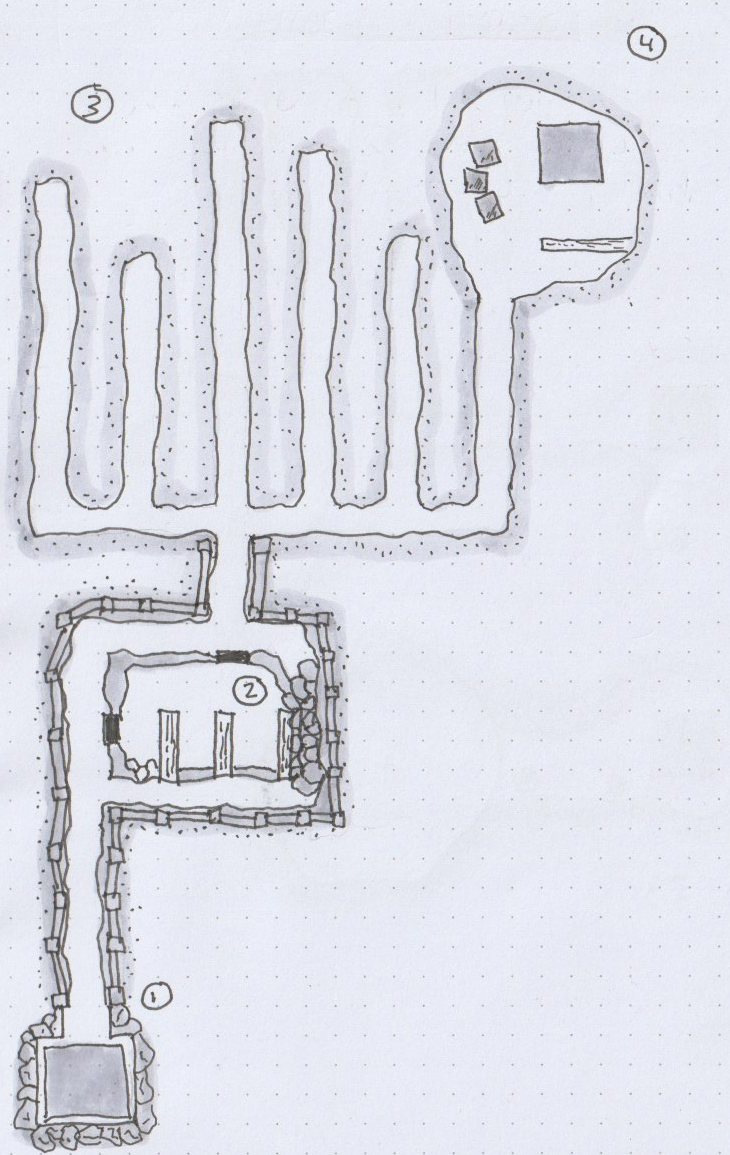 4
3
2
1